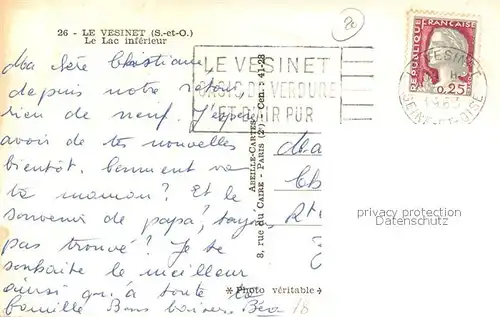 26 - LE VESINET (S.-et-O.)
Le Lac inférieur
20
Ma chère Christiane,
depuis notre retour,
rien de neuf. J'espère
avoir de tes nouvelles
bientôt. Comment va
ta maman? Et le
souvenir de papa, toujours
pas trouvé? Je te
souhaite le meilleur
ainsi qu'à toute ta
famille Bons baisers Béa
18
LE VESINET
OASIS DE VERDURE
ET D'AIR PUR
ABEILLE-CARTES
8, rue du CAIRE - PARIS (2e) - Cen. : 41-28
✶ Photo véritable ✶
REPUBLIQUE FRANÇAISE
0,25
LE VESINET
1963
SEINE-ET-OISE
privacy protection
Datenschutz